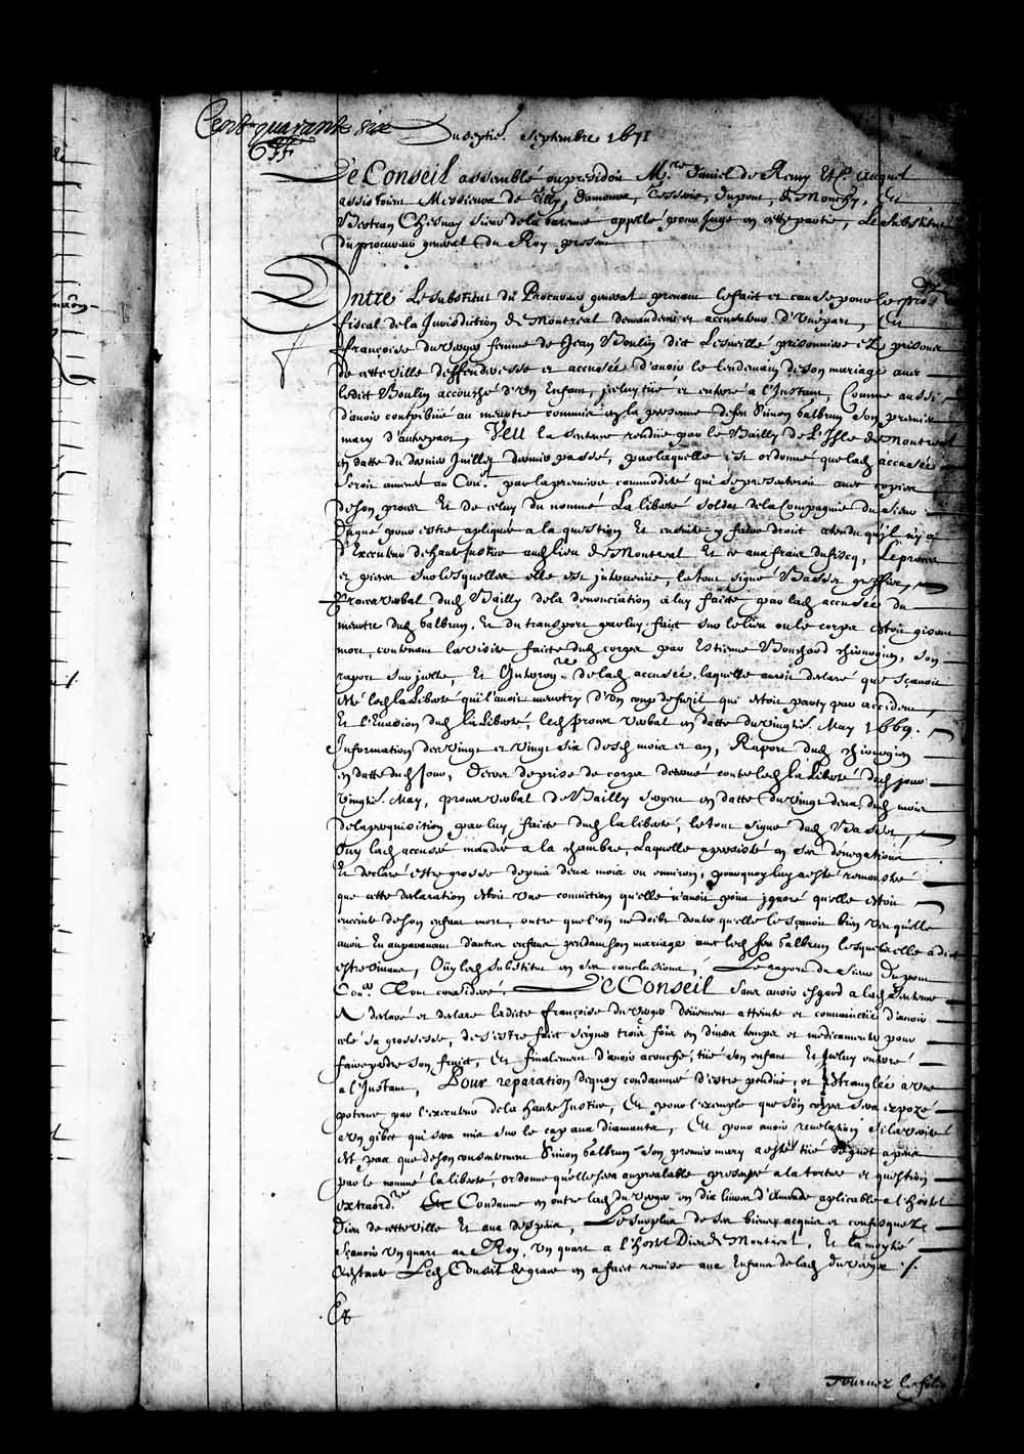 Cent quarante six
Du septie. Septembre 1671
Le Conseil assemblé ou presidoit Mre. Daniel de Remy &c. auquel
assistoient Messieurs de Tilly, Damours, Tesserie, Dupont, de Mouchy, Et
Bertran Chesnay sieur de la Garenne appellé pour juge en cette partie, Le Substitut
du procureur general du Roy present
Entre Le substitut du Procureur general prenant le fait et cause pour le Procr
fiscal de la Jurisdiction de Montreal demandeur et accusateur d'une part, Et
françoise du verger femme de Jean Boulin dit Lesueillé prisonniere es prisons
de cette ville deffenderesse et accusée d'avoir le lendemain de son mariage avec
ledit Boulin accouché d'un Enfant, iceluy tué et enterré a l'Instant, Comme aussi
d'avoir contribüé au meurtre commis en la personne de feu Simon Galbrun son premier
mary d'autre part, VEU la sentence rendüe par le Bailly de L'Isle de Montreal
en datte du dernier Juillet dernier passé, par laquelle est ordonné que lad accusée
seroit amenée au Conl. par la premiere commodité qui se presenteroit avec copies
de son procez Et de celuy du nommé La liberté soldat de la Compagnie du sieur
pour estre apliquée a la question Et ensuite y faire droit atendu qu'il n'y a
d'Executeur de haute Justice aud lieu de Montreal Et ce aux frais du fiscq, Le procez
et pieces sur lesquelles elle est intervenüe, le tout signé Basset greffier,
Procez verbal dud Bailly de la denonciation a luy faicte par lad accusée du
meurtre dud Galbrun, Et du transport par luy fait sur le lieu ou le corps estoit gisant
mort, contenant la visite faicte dud corps par Estienne Bouchard chirurgien, son
raport sur icelle, Et Interrog.re de lad accusée, laquelle auroit declaré que sçavoit
esté led la Liberté qui l'avoit meurtry d'un coup de fuzil qui estoit party par accident,
Et l'Evasion dud La Liberté, led procez verbal en datte du vingtie. May 1669.
Information des vingt et vingt six desd mois et an, Raport dud chirurgien
en datte dud Jour, decret de prise de corps decerné contre led La Liberté dud jour
vingtie. May, procez verbal de Bailly sergent en datte du vingt deux dud mois
de la perquisition par luy faicte dud la liberté, le tout signé dud Basset,
Ouy lad accusée mandée a la chambre, Laquelle a persisté en ses dénegations
Et declaré estre grosse depuis deux mois ou environ, pourquoy luy a esté remonstré
que cette declaration estoit une conviction qu'elle n'avoit point ignoré qu'elle estoit
enceinte de son enfant mort, outre que l'on ne doibt douter qu'elle le sçavoit bien veu qu'elle
avoit Eu auparavant d'autres enfans pendant son mariage avec led feu Galbrun lesquels elle a dict
estre vivans, Oüy led substitut en ses conclusions, Le raport du sieur Dupont
Conser. Tout consideré. Le Conseil sans avoir esgard a lad Sentence
A declaré et declare ladite françoise du verger deüement atteinte et convaincüe d'avoir
celé sa grossesse, de s'estre fait seigner trois fois en divers temps et medicamenter pour
faire perdre son fruict, Et finalement d'avoir acouché, tüé son enfant Et Iceluy enterré
a l'Instant, Pour reparation dequoy condamnée d'estre pendüe et Estranglée a une
potence par l'executeur de la haute Justice, Et pour l'exemple que son corps sera expozé
a un gibet qui sera mis sur le cap aux diamants, Et pour avoir revelation si la verité
est pas que de son consentement Simon Galbrun son premier mary a esté tüé
par le nommé la liberté, ordonne qu'elle sera auprealable à la torture et question
extraordre. Et Condamne en outre lad du verger en dix livres d'amende aplicable a l'hostel
Dieu de cette ville Et aux despens, Le surplus de ses biens acquis et confisquez
sçavoir un quart au Roy, un quart a l'hostel Dieu de Montreal, Et la moytié
restante Led Conseil de grace en a fait remise aux Enfans de lad du verger ./.
Et
Tournez le folio